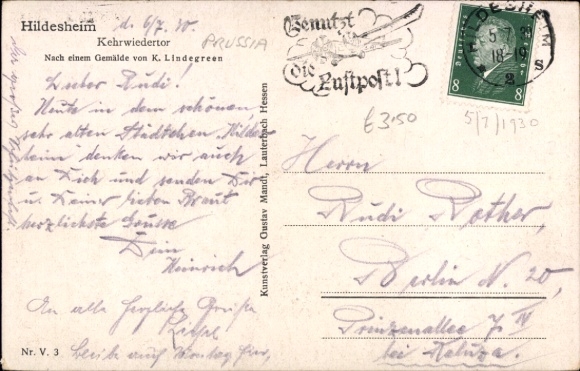 Hildesheim
d. 6/7. 30.
Kehrwiedertor
PRUSSIA
Nach einem Gemälde von K. Lindegreen
Lieber Rudi!
Heute in dem schönen
sehr alten Städtchen „Hildes
heim" denken wir auch
an Dich und senden Dir
u. Deiner lieben Braut
herzlichste Grüsse
Dein
Heinrich
An alle herzliche Grüße
Nr. V. 3
Kunstverlag Gustav Mandt, Lauterbach Hessen
Benutzt
die
Luftpost!
HILDESHEIM
5.7.30
18-19
S
8
8
£3.50
5/7/1930
Herrn
Rudi Rother,
Berlin N. 20,
Prinzenallee 7 IV
bei Kaluza.